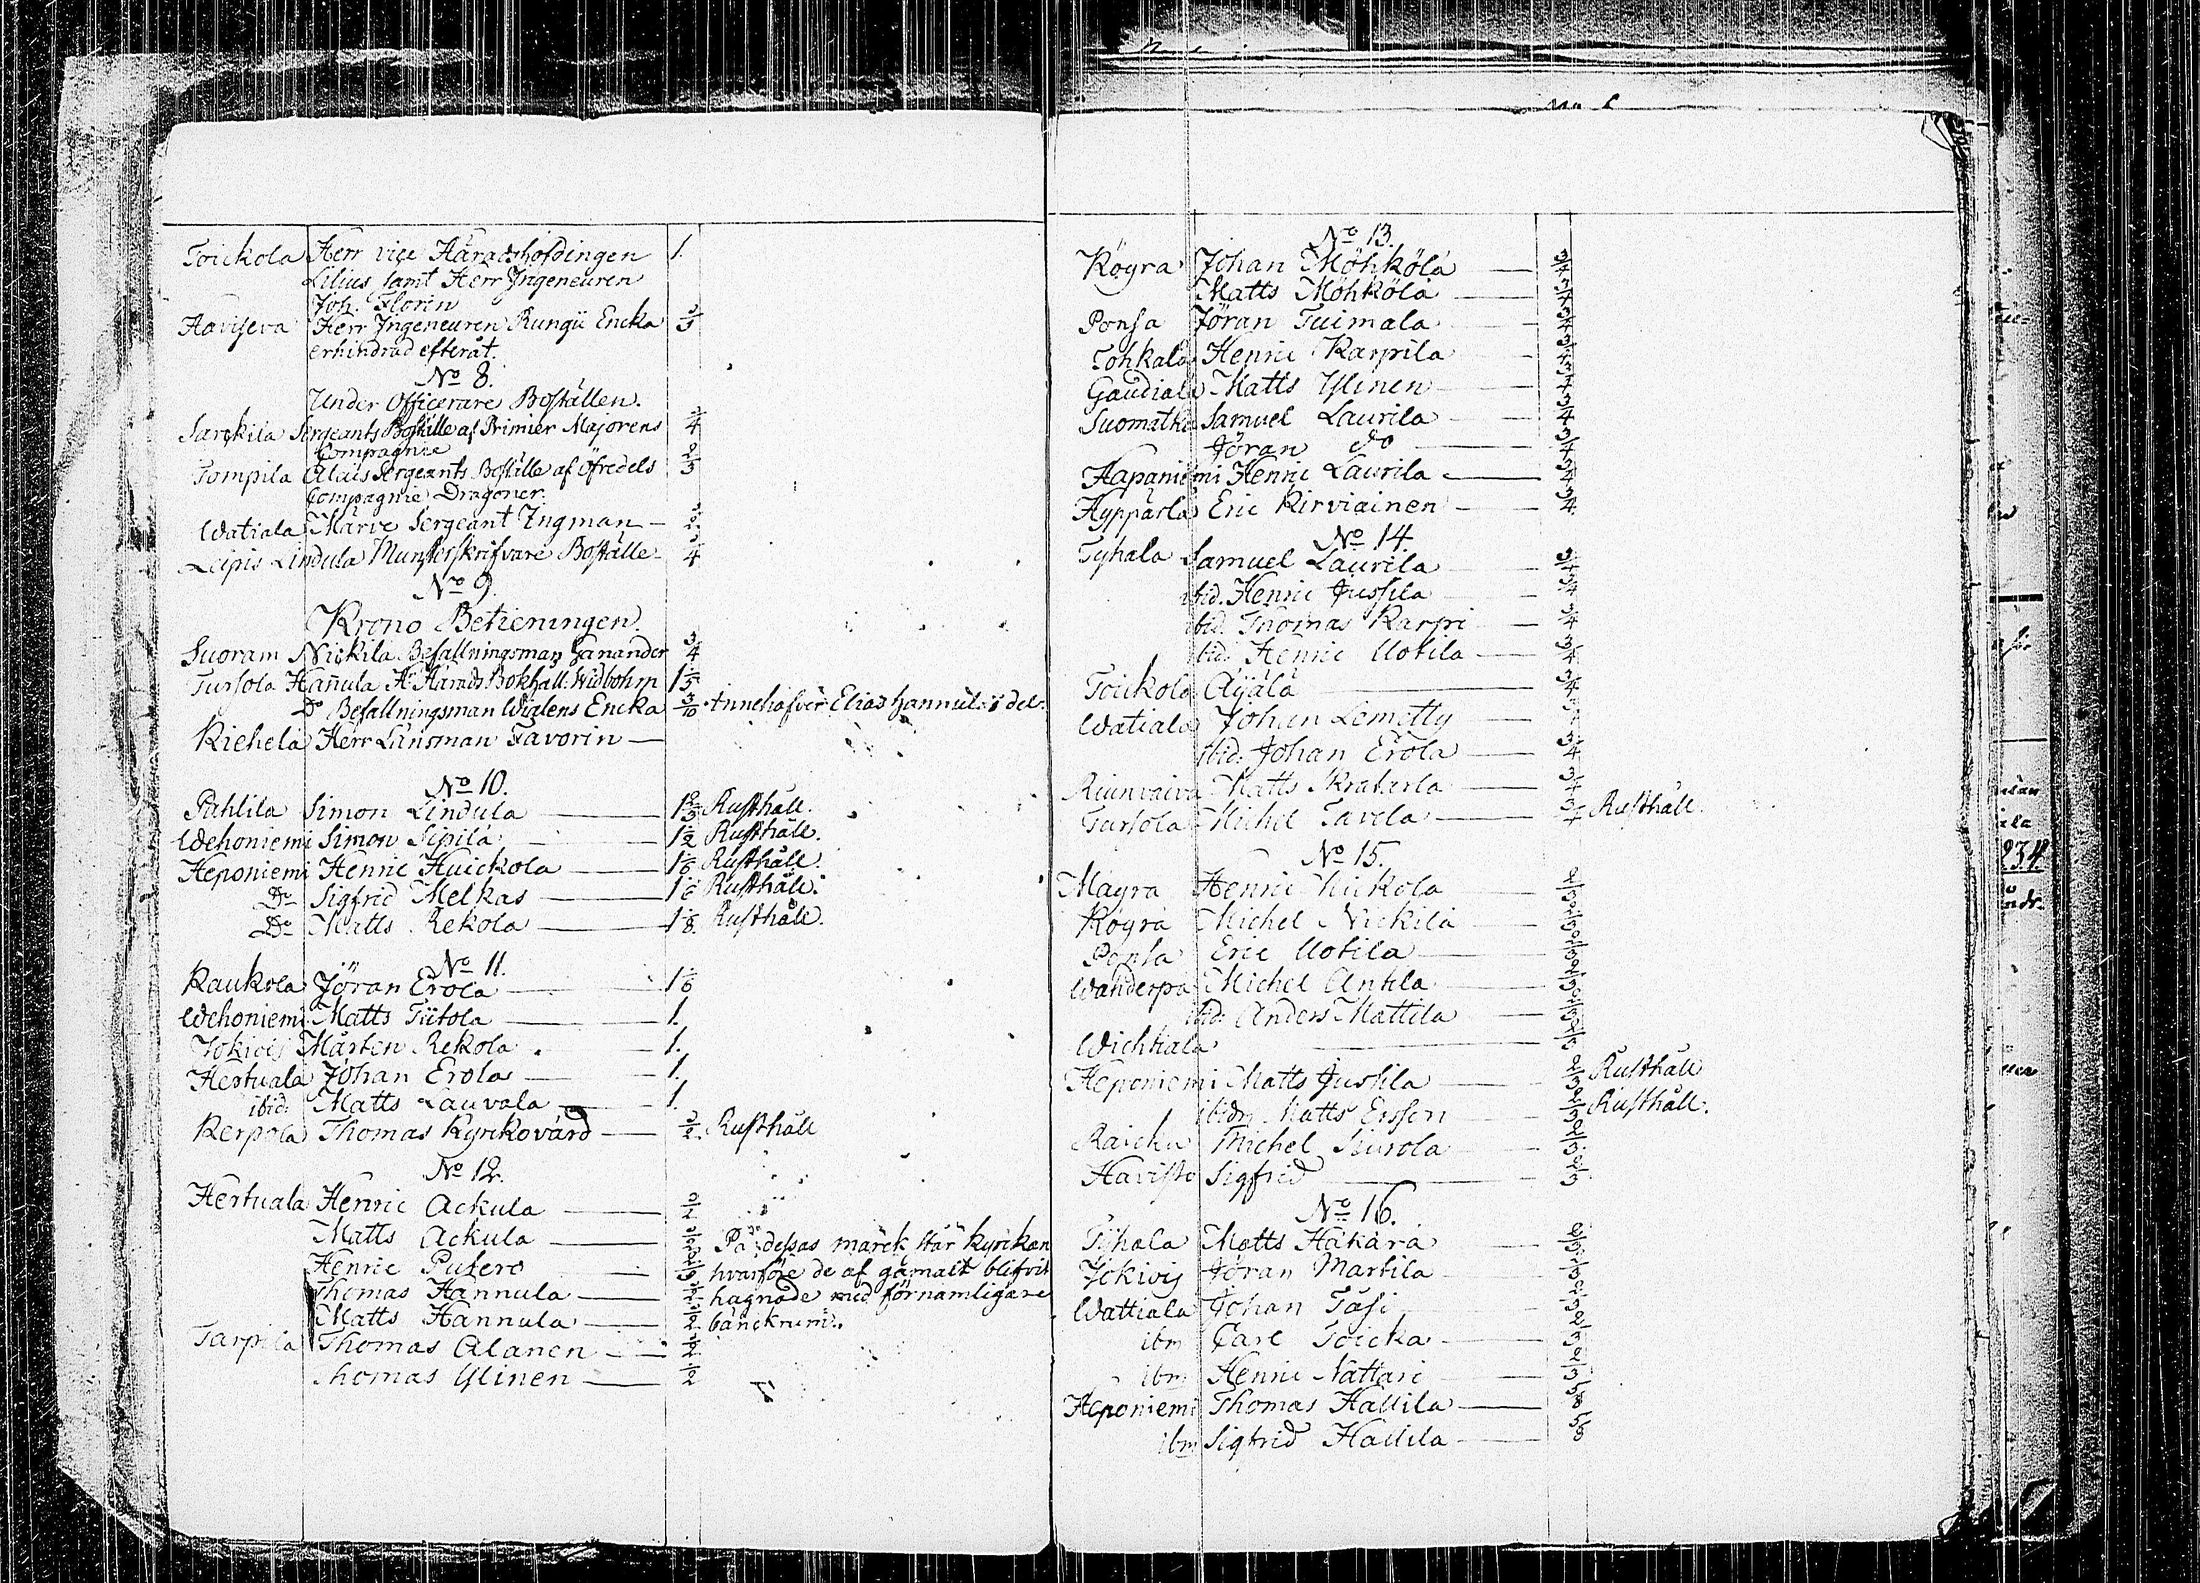 Toickola Herr vice Häradshöfdingen 1.
Lilius samt Herr Ingeneuren
Joh. Florin
Haviseva Herr Ingeneuren Rungii Encka 2/3
erhindrad efteråt.
No 8.
Under Officerare Boställen.
Särkilä Sergeants Boställe af Primier Majorens 3/4
Compagnie
Tompila Alais Sergeants Boställe af Öfredels 2/3
Compagnie Dragoner.
Watiala Märve Sergeant Ingman 1/2
Leipis Lindula Munsterskrifvare Boställe 3/4
No 9.
Krono Betieningen.
Suoram Nickila Befallningsman Ganander 3/4
Tursola Hañula Hr Härads Bokhåll. Widbohm 1 1/5
Do Befallningsman Wialens Encka 3/10 Innehafver Elias Hannula del.
Kiehela Herr Länsman Favorin
No 10.
Pahlila Simon Lindula 1 2/3 Rusthåll.
Wehoniemi Simon Sipilä 1 1/2 Rusthåll.
Heponiemi Henric Huickola 1 1/6 Rusthåll.
Do Sigfrid Melkas 1 1/6 Rusthåll.
Do Matts Rekola 1 1/8 Rusthåll.
No 11.
Kaukola Jöran Erola 1 1/6
Wehoniemi Matts Tiitola 1.
Jokioij Mårten Rekola 1.
Hertuala Johan Erola 1.
ibid: Matts Lauvola 1.
Kerpola Thomas Kyrckovärd 1/2 Rusthåll
No 12.
Hertuala Henric Ackula 1/2
Matts Ackula 1/2 På dessas marck står kyrckan
Henric Putero hvarföre de af gamalt blifvit
Thomas Hannula 1/2 hagnade med förnamligare
Matts Hannula 1/2 bänckrum.
Tarpila Thomas Alanen 1/2
Thomas Ylinen 1/2
No 13.
Köyrä Johan Möhkölä 3/4
Matts Möhkölä 3/4
Ponsa Jöran Tuimala 3/4
Tohkala Henric Karpila 3/4
Gaudiala Matts Ylinen 3/4
Suomatka Samuel Laurila 3/4
Jöran do 3/4
Hapaniemi Henric Laurila 3/4
Hyppärla Eric Kirviainen 3/4
No 14.
Tyhala Samuel Laurila 3/4
ibid. Henric Jussila 3/4
ibid. Thomas Karpi 3/4
ibid. Henric Uotila 3/4
Toickola Äijälä 3/4
Watiala Johan Lemetty 3/4
ibid: Johan Erola 3/4
Riunvaiva Matts Skratarla 3/4
Tursola Michel Tavela 3/4 Rusthåll.
No 15.
Mäyrä Henric Nickola 2/3
Köyrä Michel Nickilä 2/3
Ponsa Eric Uotila 2/3
Wanderpä Michel Antila 2/3
ibid: Anders Mattila 2/3
Wichtiala 2/3
Heponiemi Matts Jussila 2/3 Rusthåll
ibidm Matts Ersson 2/3 Rusthåll.
Raicku Michel Siurola 2/3
Havisto Sigfrid 2/3
No 16.
Tÿhala Matts Häkärä 2/3
Jokioij Jöran Martila 2/3
Wattiala Johan Täsi 2/3
ibm Carl Toicka 2/3
ibm Henric Nattari 2/3
Heponiemi Thomas Hallila 5/8
ibm Sigfrid Hallila 5/8
234